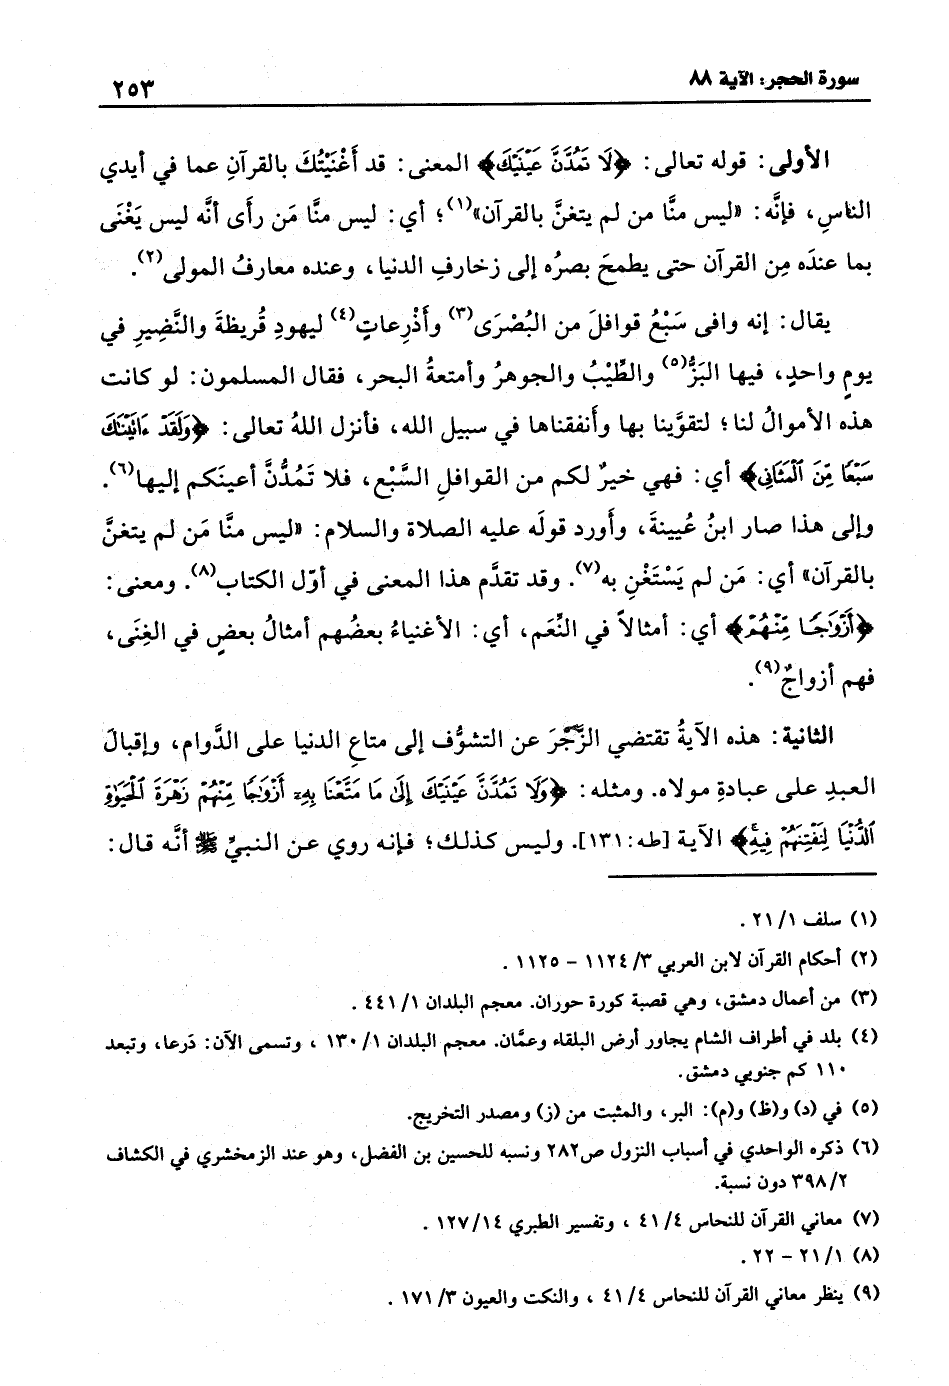 سورة الحجر: الآية ٨٨
٢٥٣
الأولى: قوله تعالى: ﴿لَا تَمُدَّنَّ عَيْنَيْكَ﴾ المعنى: قد أَغْنَيْتُكَ بالقرآنِ عما في أيدي
الناسِ، فإنَّه: «ليس منَّا من لم يتغنَّ بالقرآن»(١)؛ أي: ليس منَّا مَن رأَى أنَّه ليس يَغْنَى
بما عندَه مِن القرآن حتى يطمحَ بصرُه إلى زخارفِ الدنيا، وعنده معارفُ المولى(٢).
يقال: إنه وافى سَبْعُ قوافلَ من البُصْرَى(٣) وأَذْرِعاتٍ(٤) ليهودِ قُريظةَ والنَّضِيرِ في
يومٍ واحدٍ، فيها البَزُّ(٥) والطِّيْبُ والجوهرُ وأمتعةُ البحر، فقال المسلمون: لو كانت
هذه الأموالُ لنا؛ لتقوَّينا بها وأَنفقناها في سبيل الله، فأنزل اللهُ تعالى: ﴿وَلَقَدْ ءَانَيْنَٰكَ
سَبْعًا مِّنَ ٱلْمَثَانِى﴾ أي: فهي خيرٌ لكم من القوافلِ السَّبْع، فلا تَمُدُّنَّ أعينَكم إليها(٦).
وإلى هذا صار ابنُ عُيينةَ، وأَورد قولَه عليه الصلاة والسلام: «ليس منَّا مَن لم يتغنَّ
بالقرآن» أي: مَن لم يَسْتَغْنِ به(٧). وقد تقدَّم هذا المعنى في أوّل الكتاب(٨). ومعنى:
﴿أَزْوَٰجًا مِّنْهُمْ﴾ أي: أمثالاً في النِّعَم، أي: الأغنياءُ بعضُهم أمثالُ بعضٍ في الغِنَى،
فهم أزواجٌ(٩).
الثانية: هذه الآيةُ تقتضي الزَّجْرَ عن التشوُّف إلى متاعِ الدنيا على الدَّوام، وإقبالَ
العبدِ على عبادةِ مولاه. ومثله: ﴿وَلَا تَمُدَّنَّ عَيْنَيْكَ إِلَىٰ مَا مَتَّعْنَا بِهِۦٓ أَزْوَٰجًا مِّنْهُمْ زَهْرَةَ ٱلْحَيَوٰةِ
ٱلدُّنْيَا لِنَفْتِنَهُمْ فِيهِ﴾ الآية [طه: ١٣١]. وليس كذلك؛ فإنه روي عن النبيِّ ﷺ أنَّه قال:
(١) سلف ٢١/١ .
(٢) أحكام القرآن لابن العربي ١١٢٤/٣ – ١١٢٥ .
(٣) من أعمال دمشق، وهي قصبة كورة حوران. معجم البلدان ٤٤١/١ .
(٤) بلد في أطراف الشام يجاور أرض البلقاء وعمَّان. معجم البلدان ١٣٠/١ ، وتسمى الآن: دَرعا، وتبعد
١١٠ كم جنوبي دمشق.
(٥) في (د) و(ظ) و(م): البر، والمثبت من (ز) ومصدر التخريج.
(٦) ذكره الواحدي في أسباب النزول ص٢٨٢ ونسبه للحسين بن الفضل، وهو عند الزمخشري في الكشاف
٣٩٨/٢ دون نسبة.
(٧) معاني القرآن للنحاس ٤١/٤ ، وتفسير الطبري ١٢٧/١٤ .
(٨) ٢١/١ – ٢٢ .
(٩) ينظر معاني القرآن للنحاس ٤١/٤ ، والنكت والعيون ١٧١/٣ .